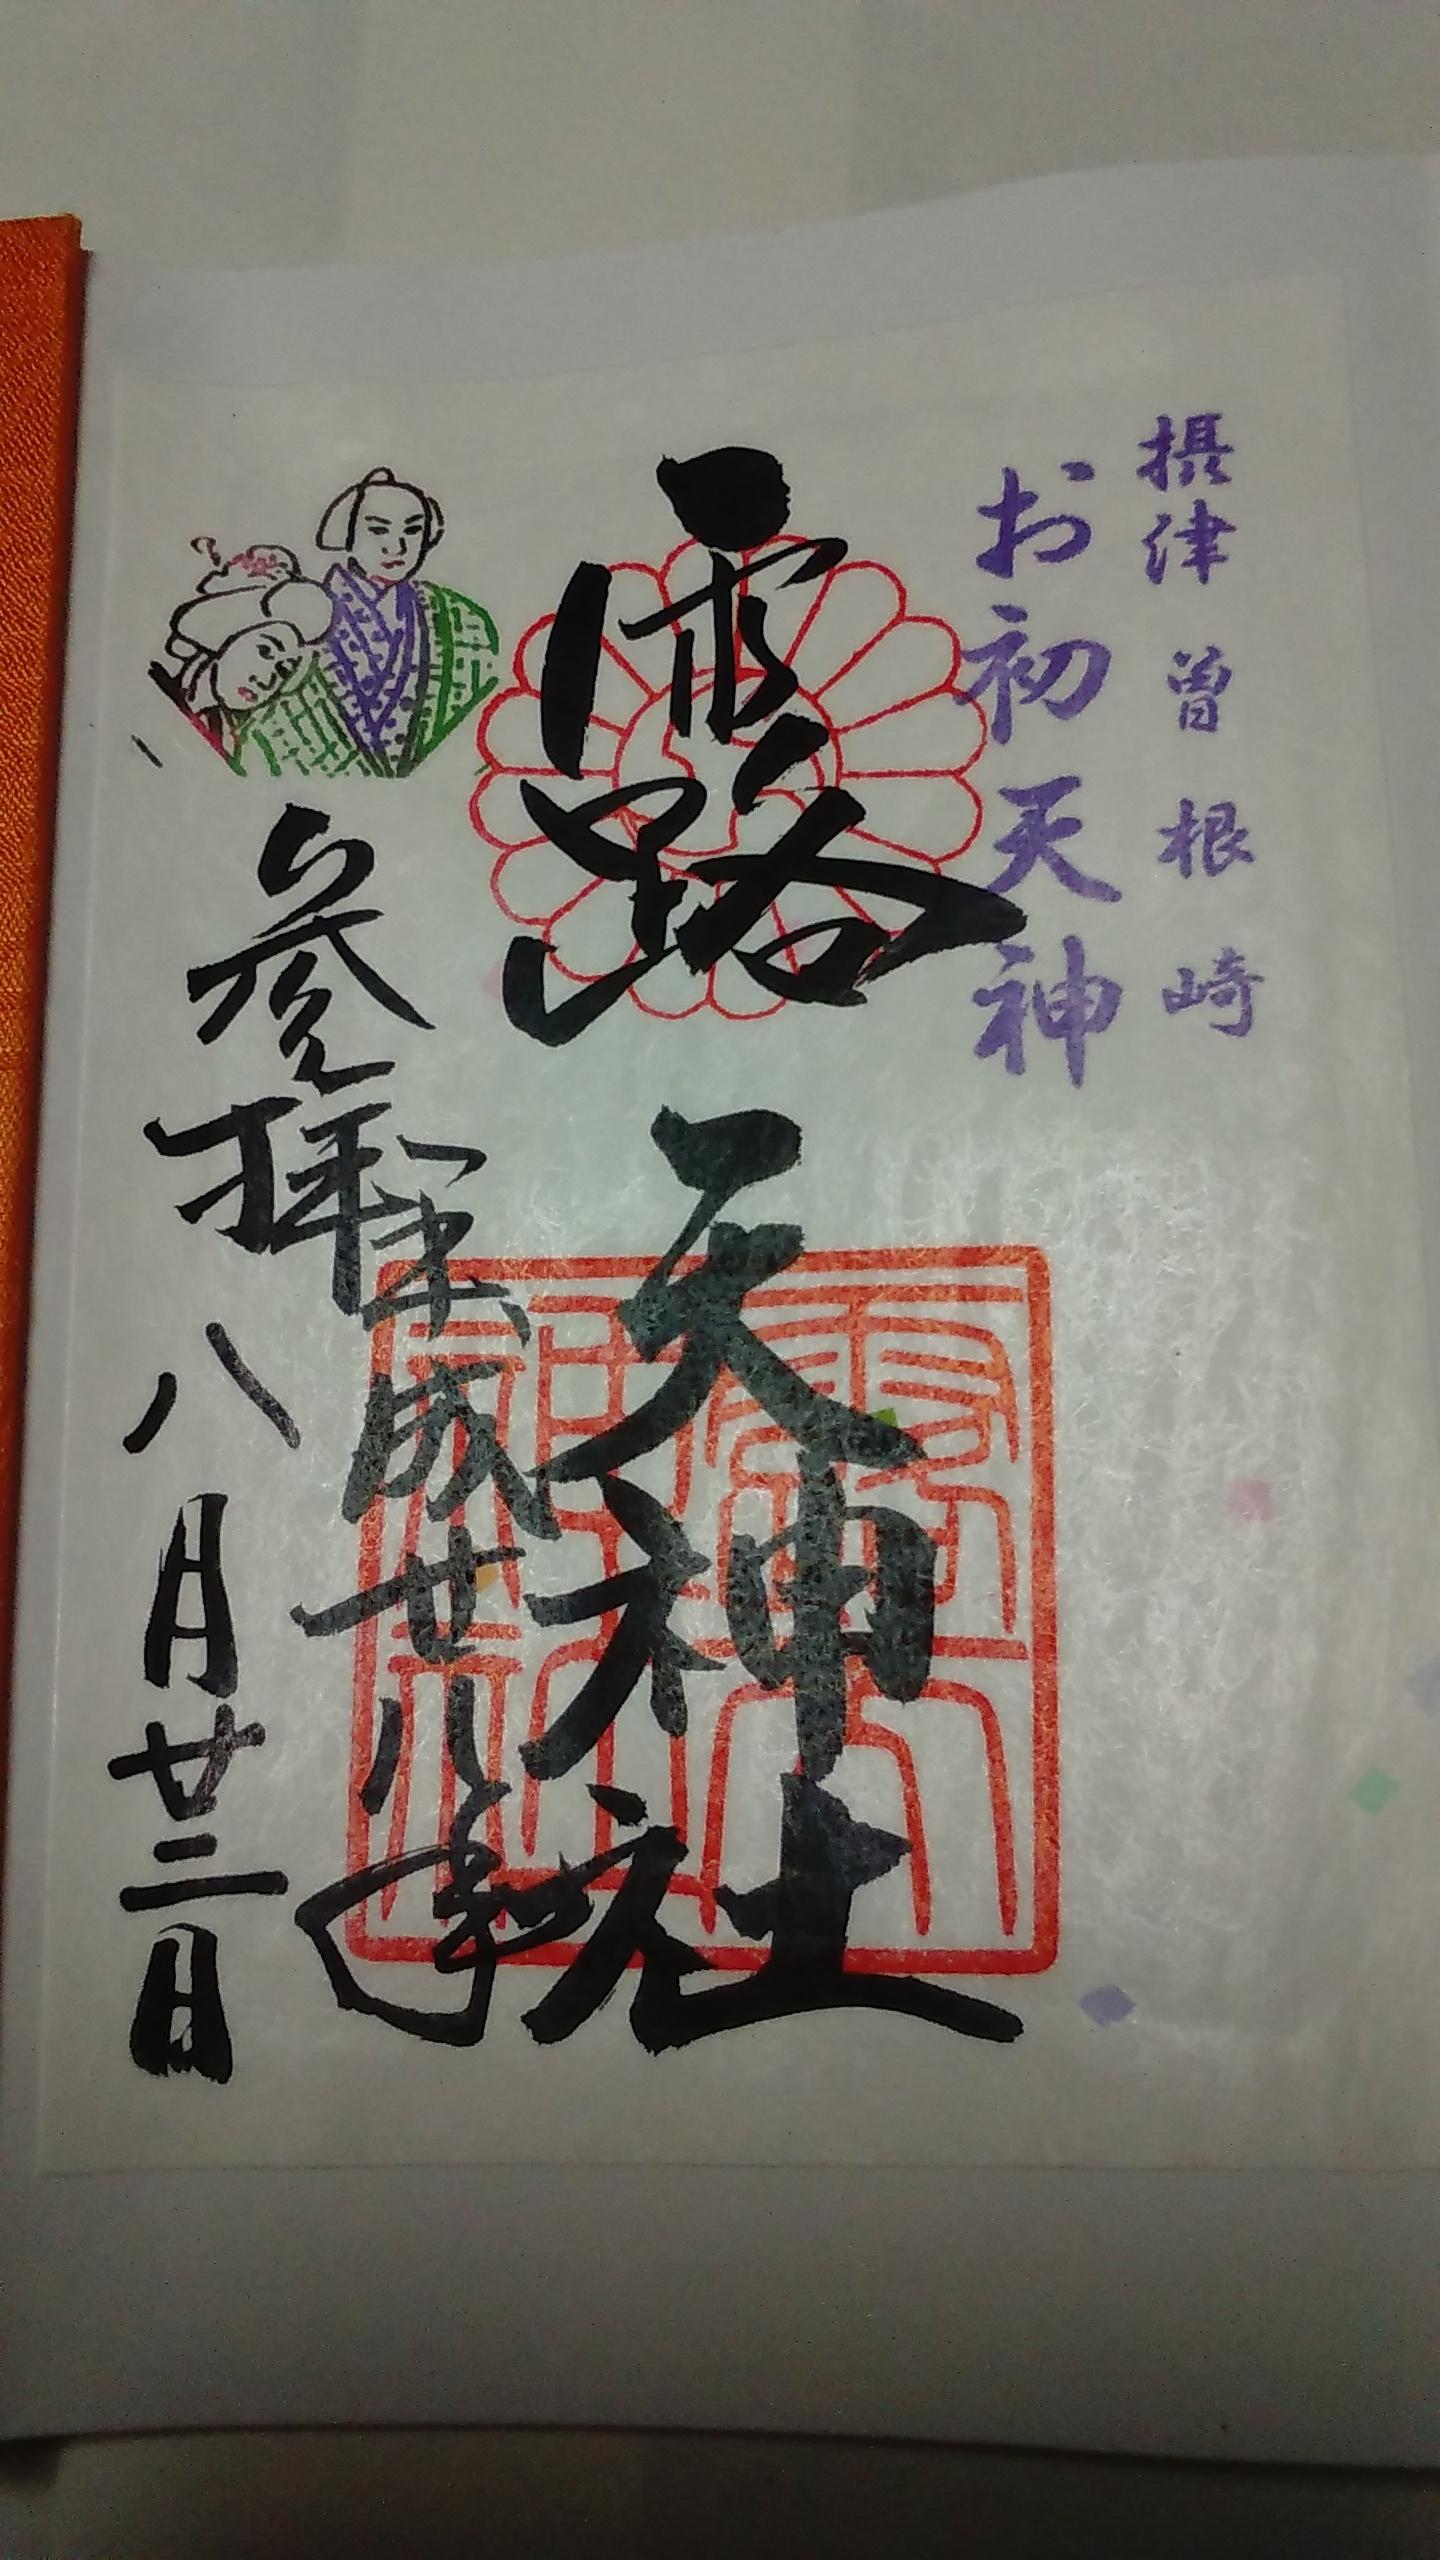 摂津 曽根崎
お初天神
露 天神社
参拝
平成廿八年
八月廿二日
露天神社